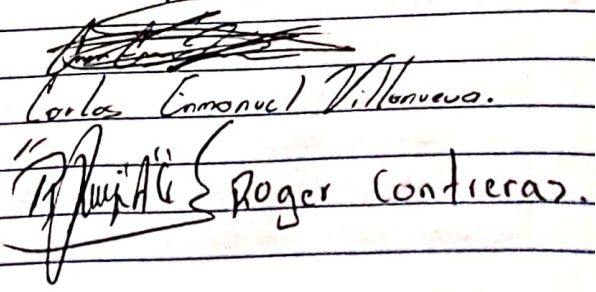 Carlos Enmanuel Villanueva.
Roger Contreraz.